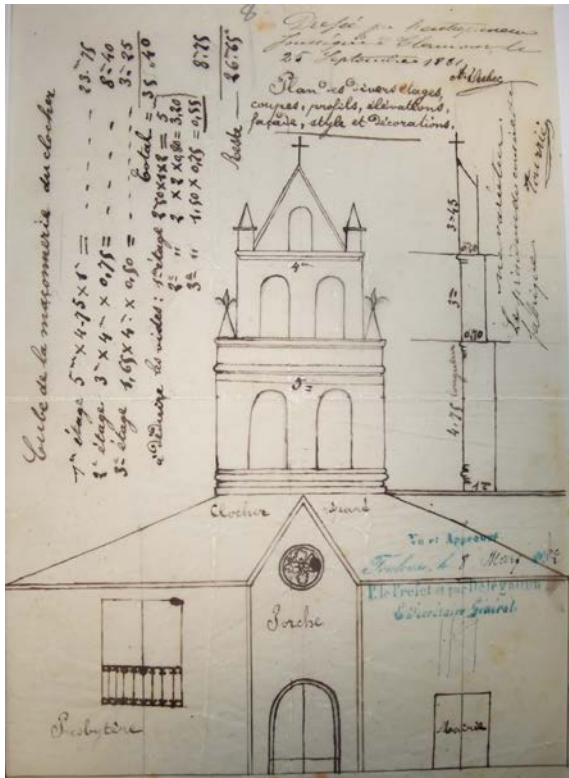 8
Dressé par
soussigné à
25 Septembre 1881
Plan des divers étages,
coupes, profils, élévations,
façade, style et décorations.
Cube de la maçonnerie du clocher
1er étage 5m × 4-75 × 1m = - - - - 23-75
2e étage 3m × 4m × 0,75 = - - - - 8-40
3e étage 1,65 × 4m × 0,50 = - - - - 3-25
Total = 35-40
à Déduire les vides : 1er étage 2,50×1×2 = 5
2e " 2 × 2 × 0,80 = 3,20
3e " 1,50 × 0,75 = 0,55
8-75
Reste — 26-65
3-45
0,50
3m
0,90
4-75 longueur
1m
ne varietur
Le président du conseil de
fabrique
4m
5m
Clocher
Porche
Vu et Approuvé
Toulouse, le 8 Mars
P. le Préfet et par Délégation
Le Secrétaire Général
Presbytère
Mairie